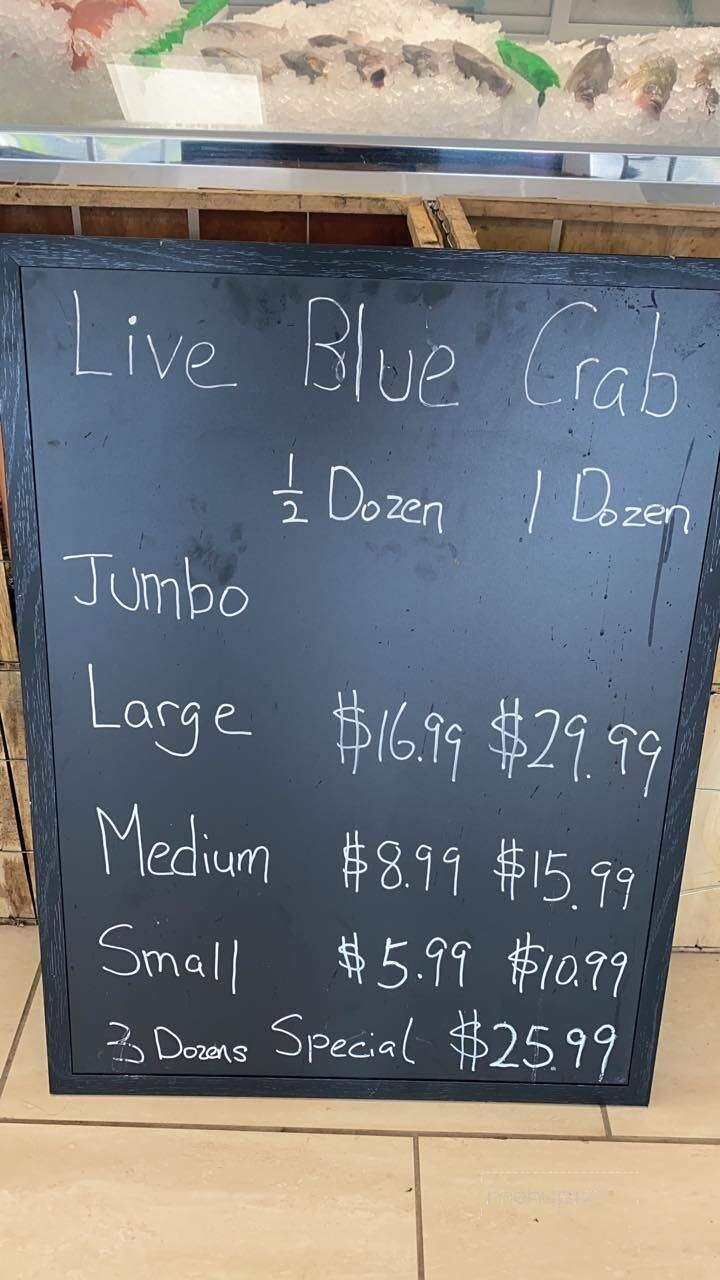 Live Blue Crab
1/2 Dozen 1 Dozen
Jumbo
Large $16.99 $29.99
Medium $8.99 $15.99
Small $5.99 $10.99
3 Dozens Special $25.99